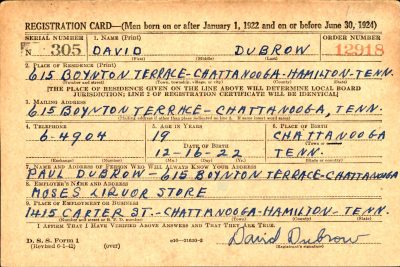 REGISTRATION CARD—(Men born on or after January 1, 1922 and on or before June 30, 1924)
SERIAL NUMBER 1. NAME (Print) ORDER NUMBER
N 305 DAVID DUBROW 12918
(First) (Middle) (Last)
2. PLACE OF RESIDENCE (Print)
615 BOYNTON TERRACE-CHATTANOOGA-HAMILTON-TENN.
(Number and street) (Town, township, village, or city) (County) (State)
[THE PLACE OF RESIDENCE GIVEN ON THE LINE ABOVE WILL DETERMINE LOCAL BOARD
JURISDICTION; LINE 2 OF REGISTRATION CERTIFICATE WILL BE IDENTICAL]
3. MAILING ADDRESS
615 BOYNTON TERRACE - CHATTANOOGA, TENN.
[Mailing address if other than place indicated on line 2. If same insert word same]
4. TELEPHONE 5. AGE IN YEARS 6. PLACE OF BIRTH
6-4904 19 CHATTANOOGA
DATE OF BIRTH (Town or county)
12-16-22 TENN.
(Exchange) (Number) (Mo.) (Day) (Yr.) (State or country)
7. NAME AND ADDRESS OF PERSON WHO WILL ALWAYS KNOW YOUR ADDRESS
PAUL DUBROW-615 BOYNTON TERRACE-CHATTANOOGA
8. EMPLOYER'S NAME AND ADDRESS
MOSES LIQUOR STORE
9. PLACE OF EMPLOYMENT OR BUSINESS
1415 CARTER ST.-CHATTANOOGA-HAMILTON-TENN.
(Number and street or R. F. D. number) (Town) (County) (State)
I AFFIRM THAT I HAVE VERIFIED ABOVE ANSWERS AND THAT THEY ARE TRUE.
D. S. S. Form 1
(Revised 6-1-42) (over) David Dubrow